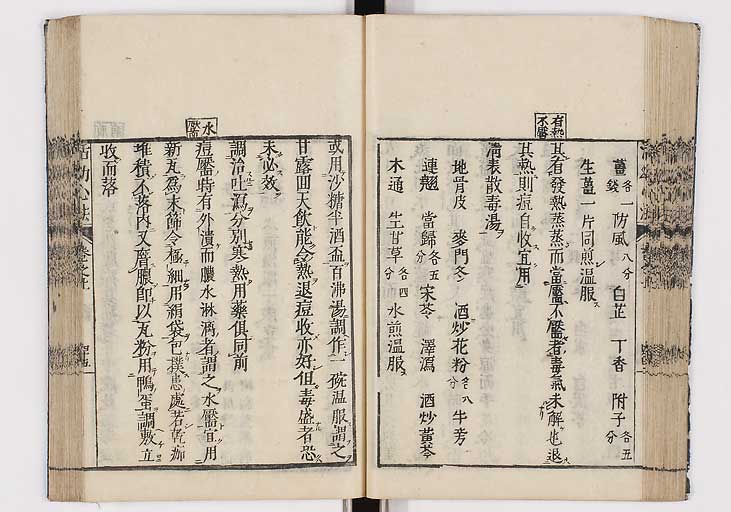 薑 各一錢 防風 八分 白芷 丁香 附子 各五分
生薑一片同煎溫服
有熱不靨
其有發熱蒸蒸而當靨不靨者毒氣未解也退
其熱則痘自收宜用
清表散毒湯
地骨皮 麥門冬 酒炒花粉 各八分 牛旁
連翹 當歸 各五分 宋苓 澤瀉 酒炒黃芩
木通 生甘草 各四分 水煎溫服
或用沙糖半酒盃百沸湯調作一碗溫服謂之
甘露回天飲能令熱退痘收亦好但毒盛者恐
未必效
調治吐瀉分別寒熱用藥俱同前
水靨
痘靨時有外潰而膿水淋漓者謂之水靨宜用
新瓦爲末篩令極細用絹袋包撲患處若乾痂
堆積不落內又膿卽以瓦粉用鴨蛋調敷立
收而落
活幼心法